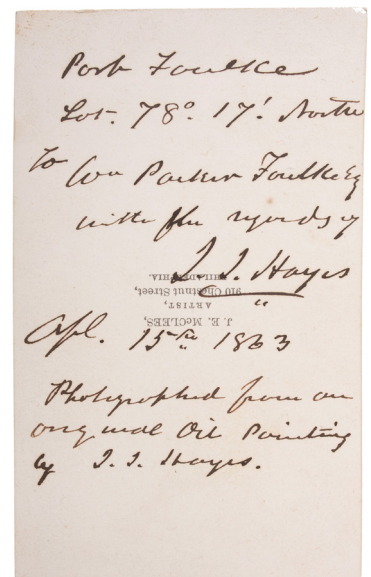 Port Foulke
Lat. 78°. 17'. North
To Wm Parker Foulke Esq
with the regards of
I. I. Hayes
J. E. McCLEES,
ARTIST,
910 Chestnut Street,
PHILADELPHIA.
Apl. 15th 1863
Photographed from an
original Oil Painting
by I. I. Hayes.